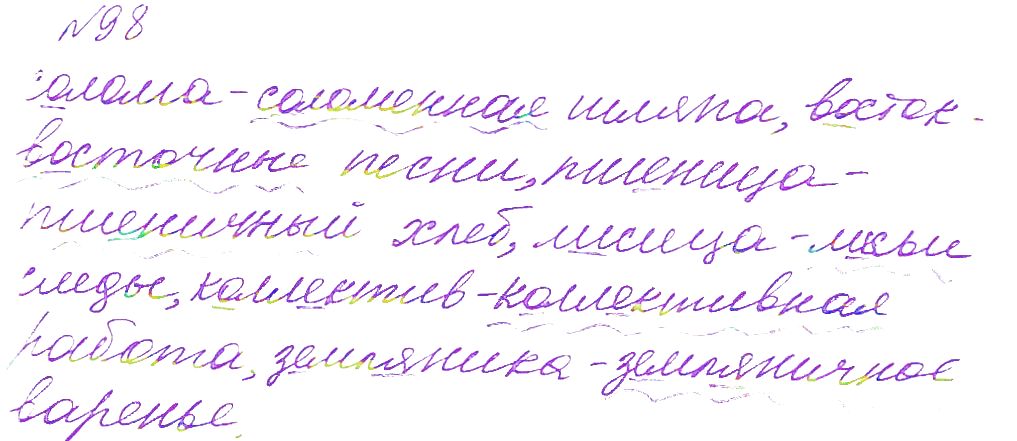 №98
солома - соломенная шляпа, восток -
восточные песни, пшеница -
пшеничный хлеб, лисица - лисьи
следы, коллектив - коллективная
работа, земляника - земляничное
варенье.